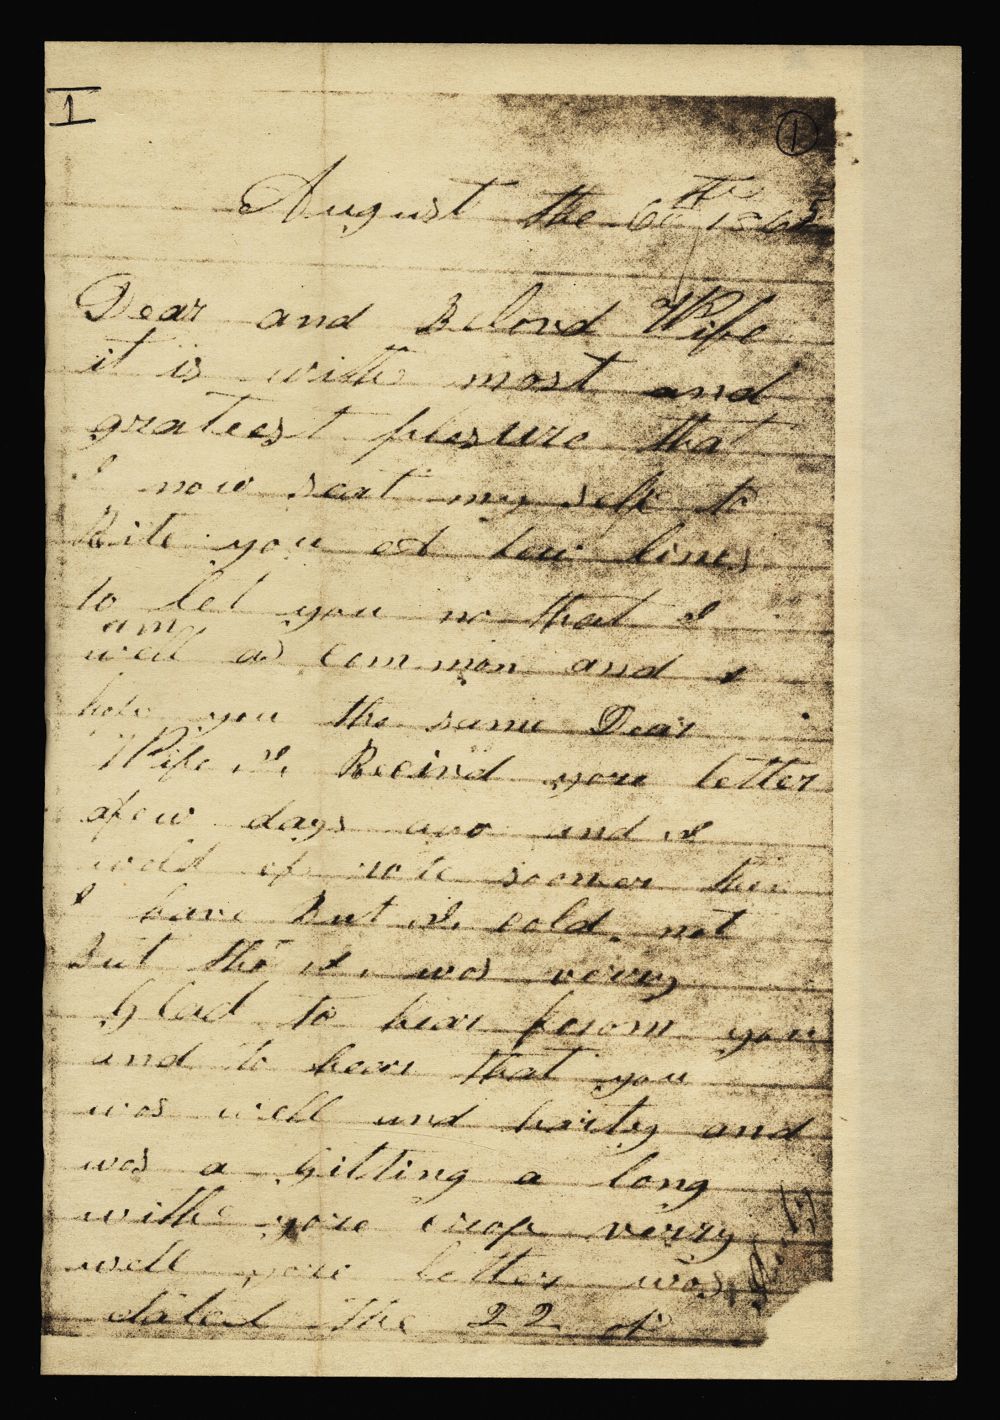 1
1
August the 6th 1865
Dear and Beloved Wife
it is withe most and
grateest plesure that
I now seat my self to
Rite you a few lines
to let you no that I
am
well as common and I
hope you the same Dear
Wife I Recived youre letter
afew days ago and I
wold of rote sooner then
I have But I cold not
But the I was verry
Glad to hear from you
and to hear that you
was well and harty and
was a Gitting a long
withe yore crop verry
well yore letter was
dated the 22 of
July